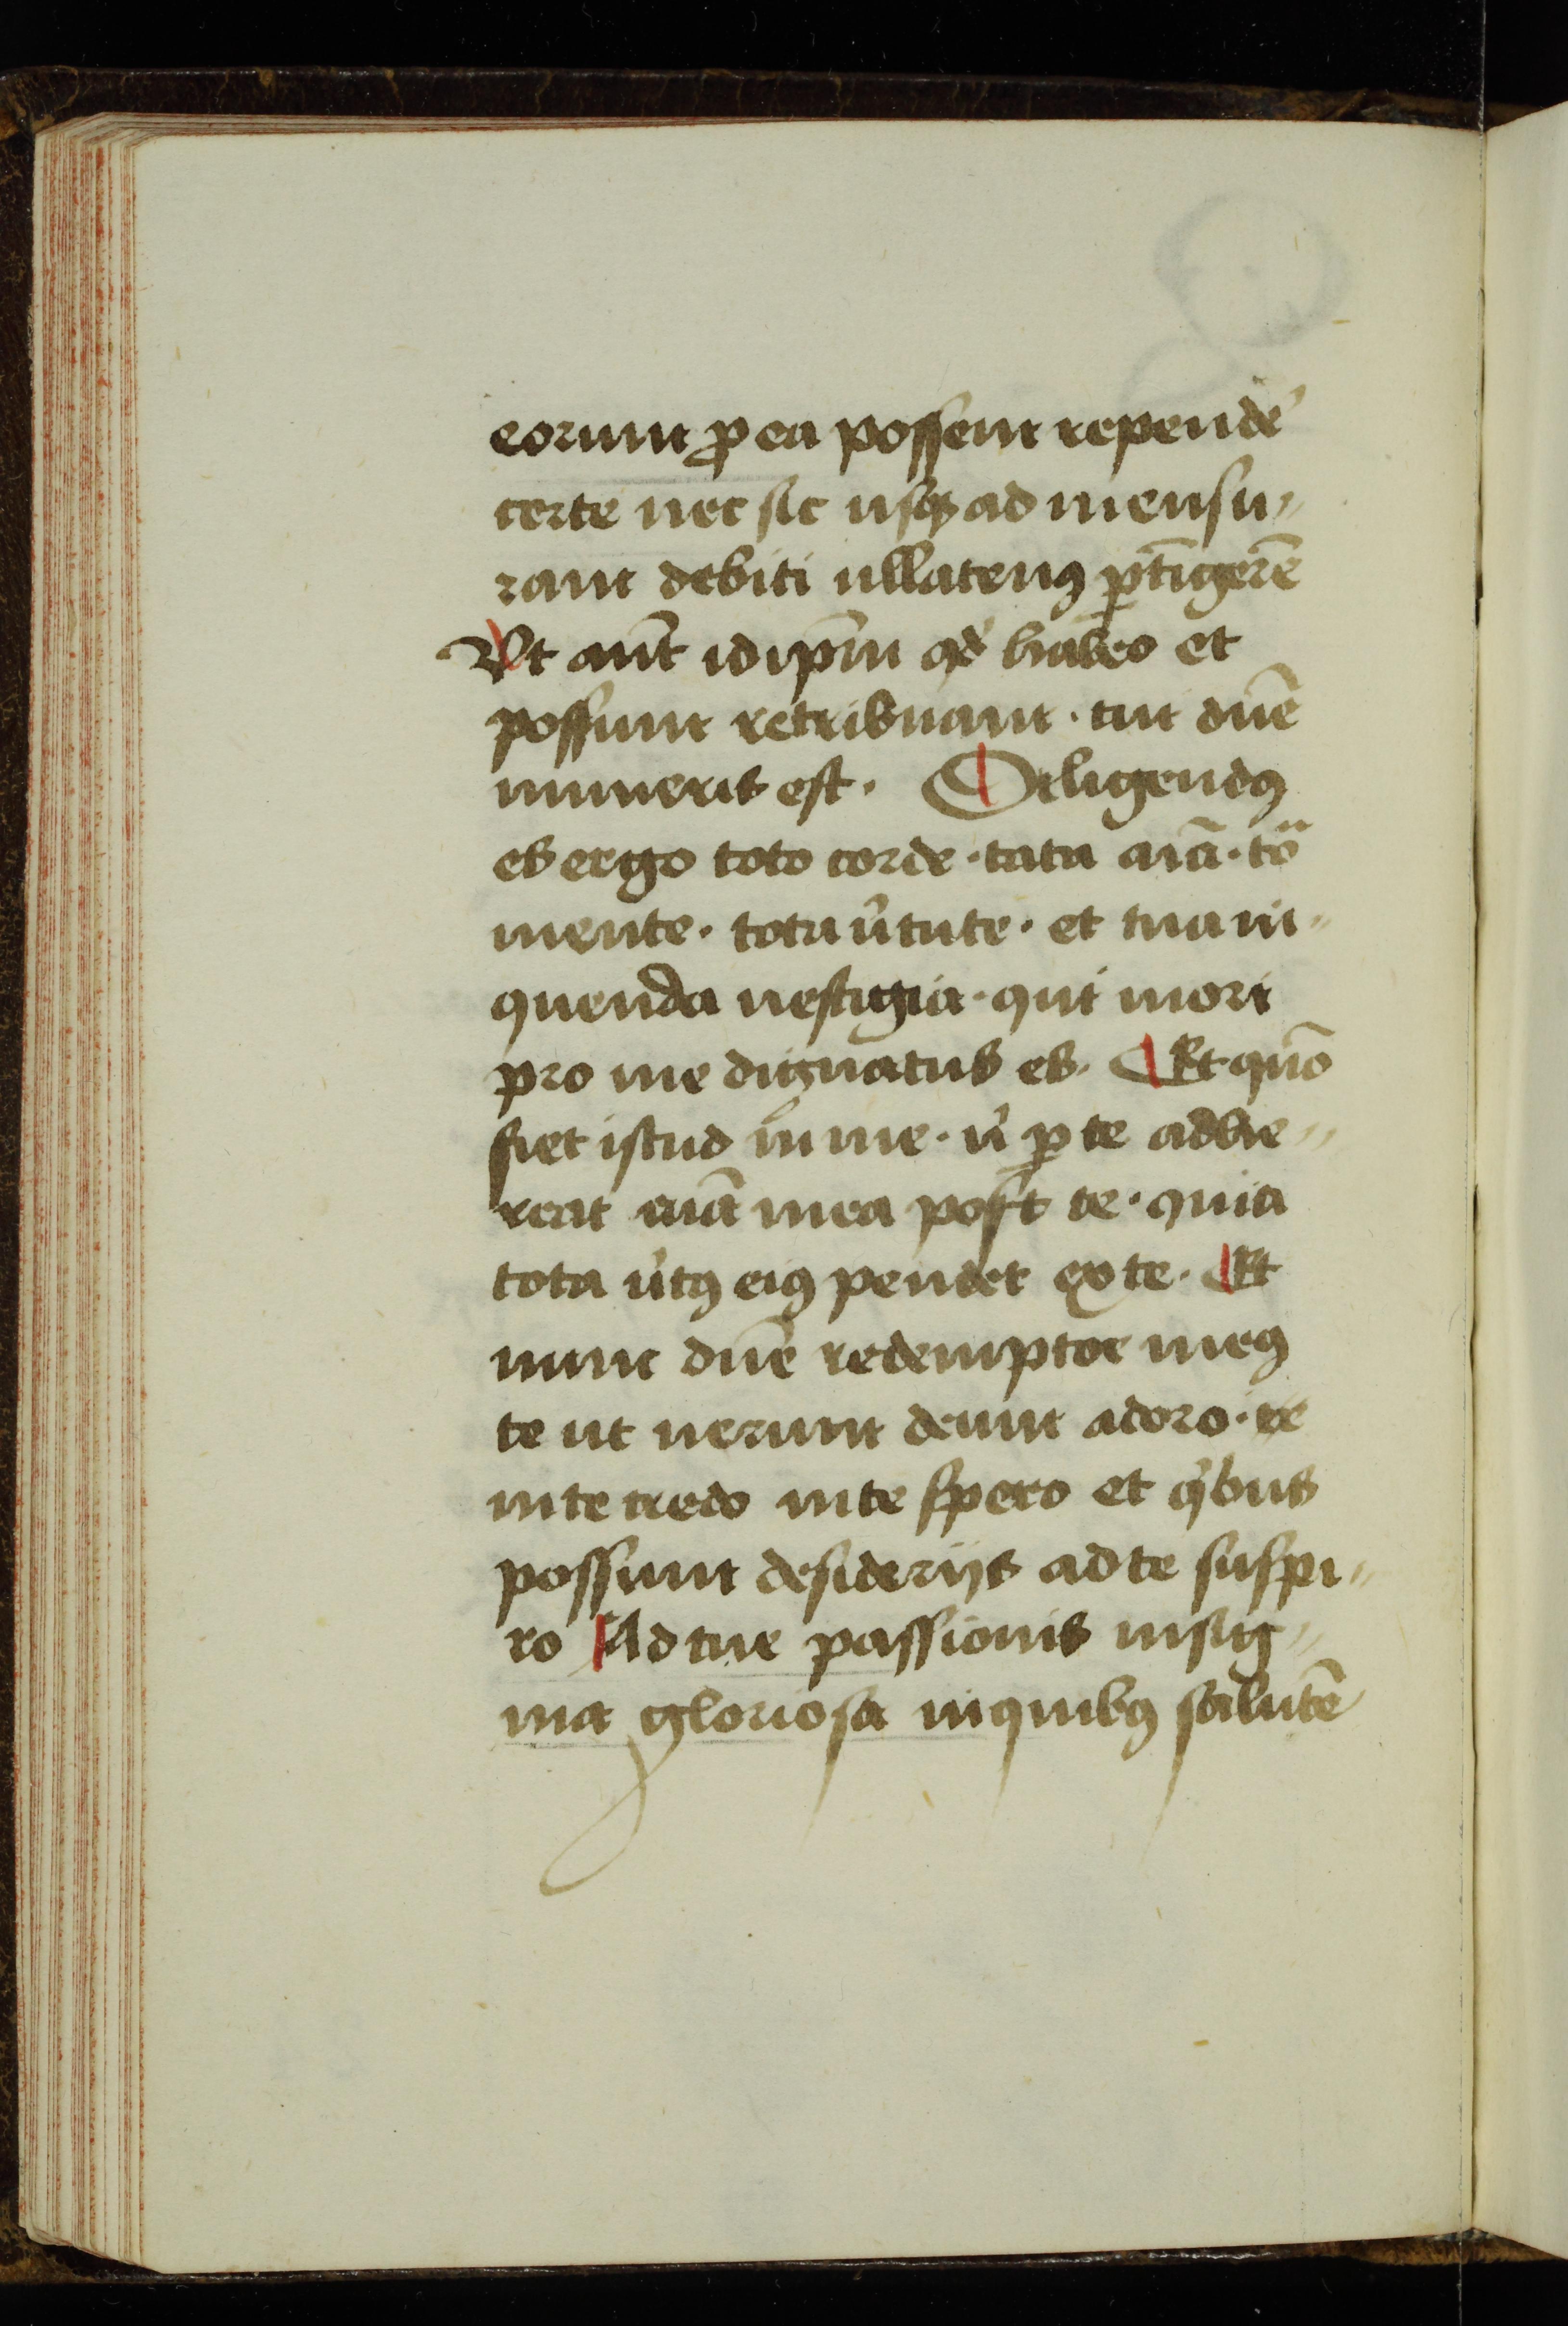 eorum ꝓ ea possem repende͛
certe nec sic usqꝫ ad mensu〃
ram debiti ullatenꝰ ꝑtīgerē
Vt aut̄ id ip̄m qd̛ habeo et
possum retribuam · tui dn̄e
muneris est · Diligendꝰ
es ergo toto corde · tota aīa · toͣ
mente · tota v̛tute · et tua in〃
quenda uestigia · qui mori
pro me dignatus es · Et quō
fiet istud in me · n̛ ꝑ te adhe〃
reat aīa mea post te · quia
tota v̛tꝰ eiꝰ pendet ex te · Et
nunc dn̄e redemptor meꝰ
te ut uerum deum adoro · te
in te credo in te spero et qⁱbus
possum desiderijs ad te suspi〃
ro Ad tue passionis insig〃
nia gloriosa in quibꝰ salutē